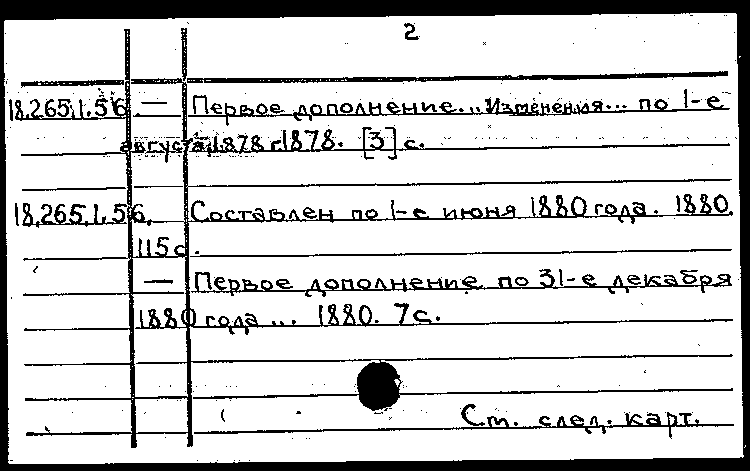 2
18.265.1.56. — Первое дополнение... Изменения... по 1-е
августа 1878 г. 1878. [3] с.
18.265.1.56. Составлен по 1-е июня 1880 года. 1880.
115 с.
— Первое дополнение по 31-е декабря
1880 года... 1880. 7 с.
См. след. карт.